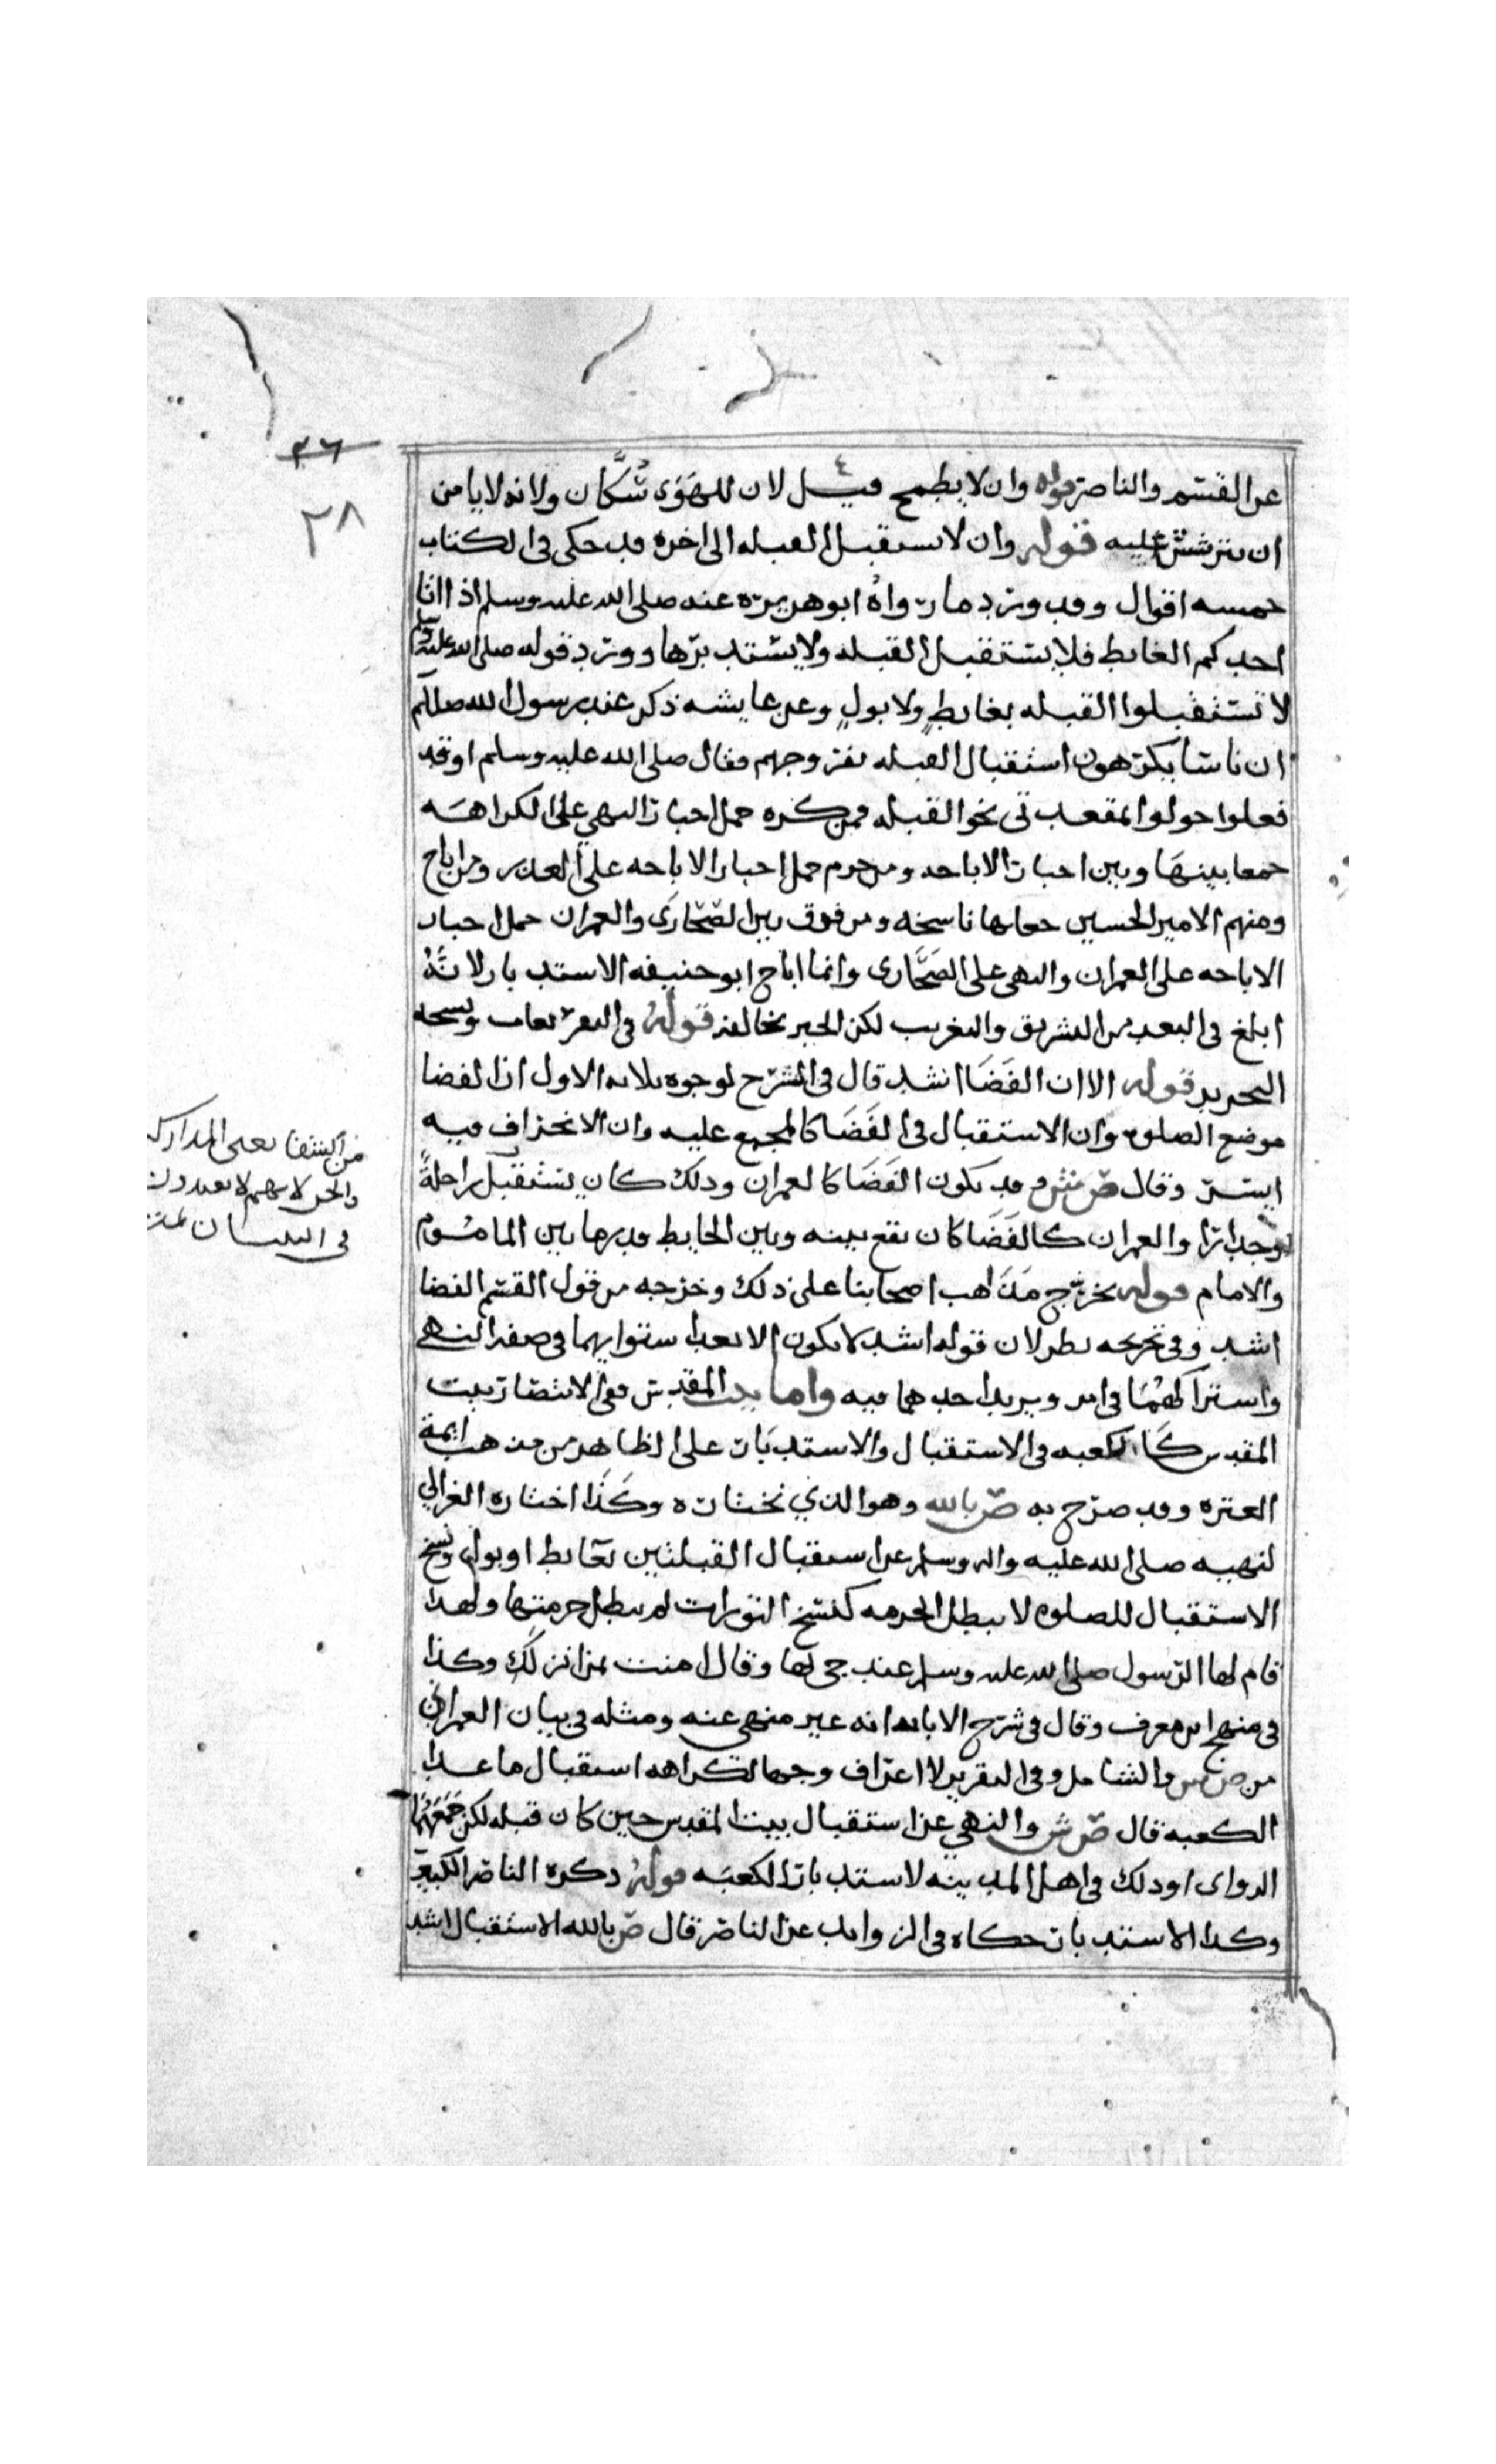 ٣٦
٢٨
عن القسم والناصر قوله وان لا يطمح قيل لان للهوى سُكَّان ولانه لا يامن
ان يترشش عليه قوله وان لا يستقبل القبله الى اخره قد حكى في الكتاب
خمسه اقوال وقد ورد ما رواه ابو هريره عنه صلى الله عليه وسلم اذا اتا
احدكم الغايط فلا يستقبل القبله ولا يستدبرها وورد قوله صلى الله عليه وسلم
لا تستقبلوا القبله بغايطٍ ولا بولٍ وعن عايشه ذكر عند رسول الله صللم
ان ناسا يكرهون استقبال القبله بفروجهم فقال صلى الله عليه وسلم اوقد
فعلوا حولوا لمقعدتي نحو القبله فمن كره حمل اخبار النهي على الكراهه
جمعا بينها وبين اخبار الاباحه ومن حرم حمل اخبار الاباحه على العذر ومن اباح
ومنهم الامير الحسين جعلها ناسخه ومن فرق بين الصحارى والعمران حمل اخبار
الاباحه على العمران والنهي على الصحارى وانما اباح ابو حنيفه الاستدبار لانه
ابلغ في البعد من التشريق والتغريب لكن الخبر يخالفه قوله في
التحرير قوله الا ان الفضا اشد قال في الشرح لوجوه ثلاثه الاول ان الفضا
موضع الصلوه وان الاستقبال في الفضا كالمجمع عليه وان الانحراف فيه
ايسر وقال ض وقد يكون الفضا كالعمران وذلك كان يستقبل راحلةً
وجدارا والعمران كالفضا كان يقع بينه وبين الحايط قدر ما بين الماموم
والامام قوله تخرج مذاهب اصحابنا على ذلك وخرجه من قول القسم الفضا
اشد وفي تخريجه نظر لان قوله اشد لا يكون الا بعد استوايهما في صفه النهي
واشتراكهما في امر ويزيد احدهما فيه واما بيت المقدس ففي الانتصار بيت
المقدس كالكعبه في الاستقبال والاستدبار على الظاهر من مذهب ايمة
العتره وقد صرح به ض بالله وهو الذي نختاره وكذا اختاره الغزالي
لنهيه صلى الله عليه واله وسلم عن استقبال القبلتين بغايط او بول ونسخ
الاستقبال للصلوه لا يبطل الحرمه كنسخ التورات لم يبطل حرمتها ولهذا
قام لها الرسول صلى الله عليه وسلم عند جي لها وقال امنت بمن انزلك وكذا
في منهج ابن معرف وقال في شرح الابانه انه غير منهي عنه ومثله في بيان العمراني
من ص ش والشامل وفي التقرير لا اعرف وجها لكراهه استقبال ما عدا
الكعبه قال ص ش والنهي عن استقبال بيت المقدس حين كان قبله لكن جمعهما
الراوى او ذلك في اهل المدينه لاستدبار الكعبه قوله ذكره الناصر الكبير
وكذا الاستدبار حكاه في الزوايد عن الناصر قال ض بالله الاستقبال اشد
من الشفا يعني المدارك
والجن لانهم لا يعبدون